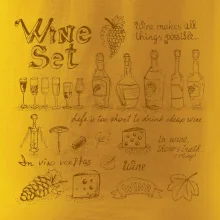 Wine
Set
Wine makes all
things possible...
life is too short to drink cheap wine
In wine
there's truth
In vino veritas
Wine